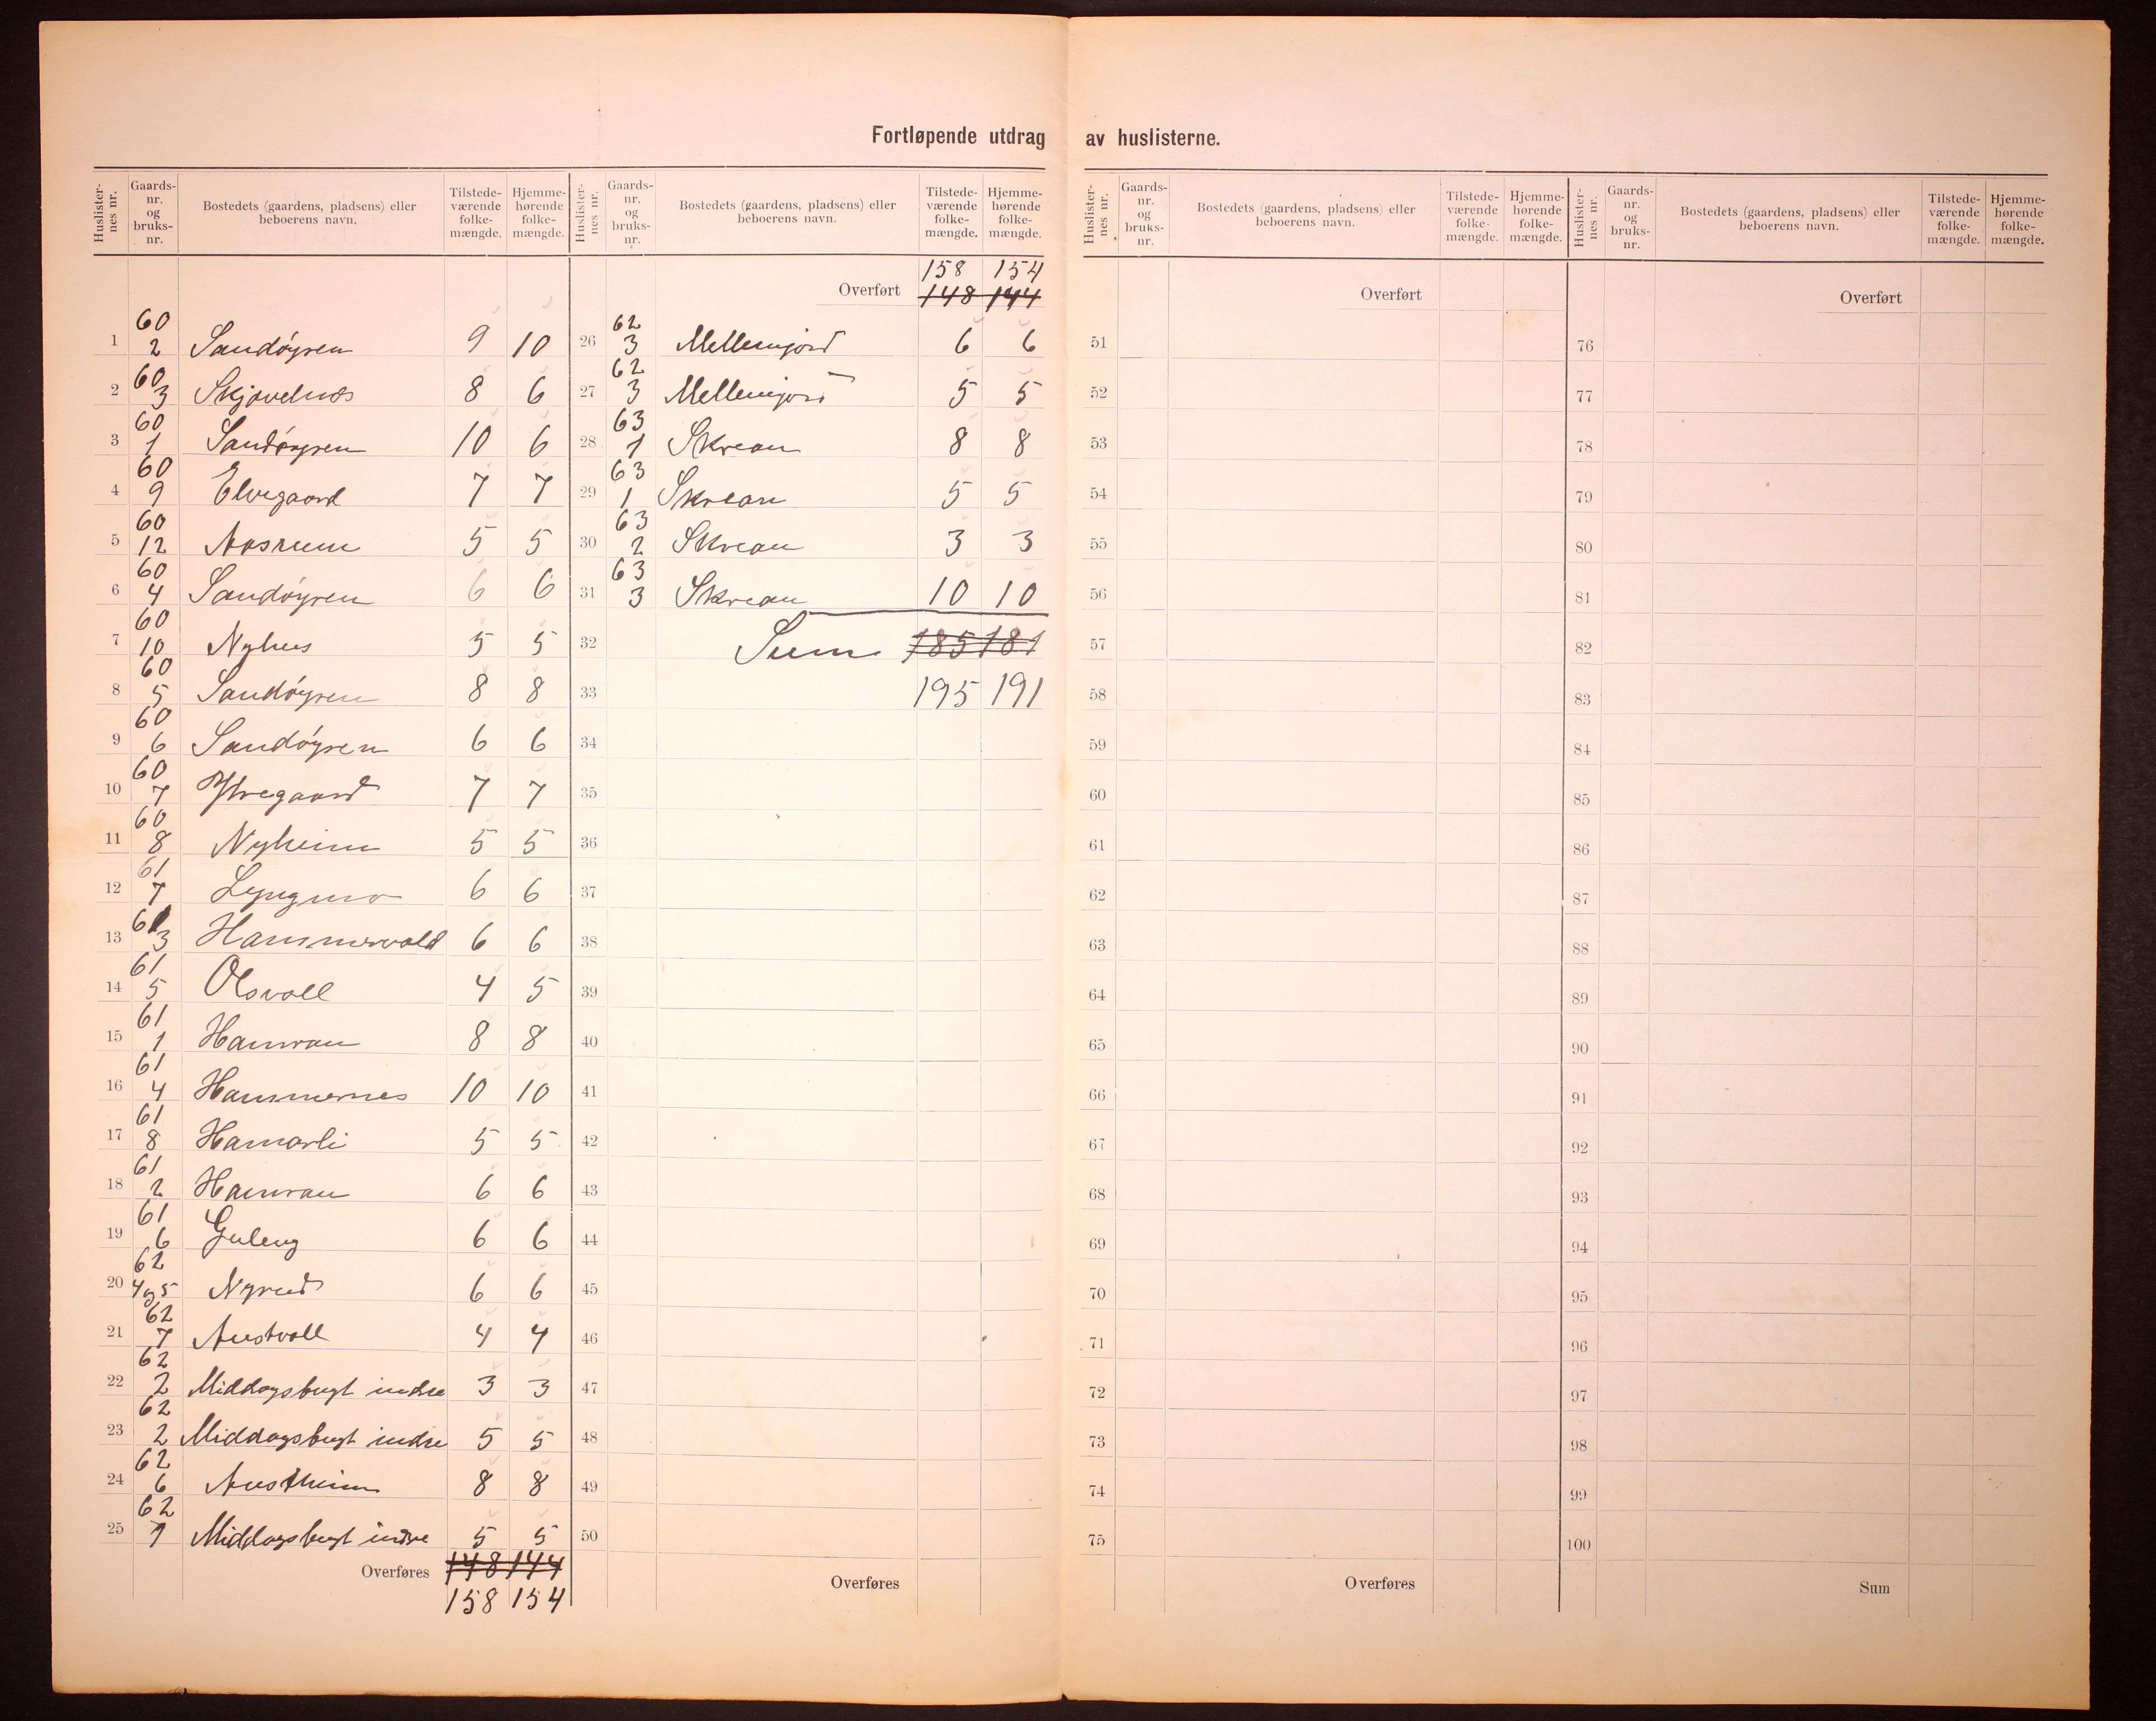 Fortløpende utdrag av huslisterne.
Huslister-nes nr. Gaards-nr. og bruks-nr. Bostedets (gaardens, pladsens) eller beboerens navn. Tilstede-værende folke-mængde. Hjemme-hørende folke-mængde.
60
1 2 Sandøyren 9 10
60
2 3 Skjævelnæs 8 6
60
3 1 Sandøyren 10 6
60
4 9 Elvegaard 7 7
60
5 12 Aasrum 5 5
60
6 4 Sandøyren 6 6
60
7 10 Nyhus 5 5
60
8 5 Sandøyren 8 8
60
9 6 Sandøyren 6 6
60
10 7 Ytregaard 7 7
60
11 8 Nyheim 5 5
61
12 7 Lyngmo 6 6
61
13 3 Hammervold 6 6
61
14 5 Olsvoll 4 5
61
15 1 Hamran 8 8
61
16 4 Hammernes 10 10
61
17 8 Hamarli 5 5
61
18 2 Hamran 6 6
61
19 6 Guleng 6 6
62
20 4 og 5 Nyrud 6 6
62
21 7 Austvoll 4 4
62
22 2 Middagsbugt indre 3 3
62
23 2 Middagsbugt indre 5 5
62
24 6 Austheim 8 8
62
25 1 Middagsbugt indre 5 5
Overføres 148 144
158 154
Huslister-nes nr. Gaards-nr. og bruks-nr. Bostedets (gaardens, pladsens) eller beboerens navn. Tilstede-værende folke-mængde. Hjemme-hørende folke-mængde.
158 154
Overført 148 144
62
26 3 Mellemjord 6 6
62
27 3 Mellemjord 5 5
63
28 1 Skrean 8 8
63
29 1 Skrean 5 5
63
30 2 Skrean 3 3
63
31 3 Skrean 10 10
32 Sum 185 181
33 195 191
34
35
36
37
38
39
40
41
42
43
44
45
46
47
48
49
50
Overføres
Huslister-nes nr. Gaards-nr. og bruks-nr. Bostedets (gaardens, pladsens) eller beboerens navn. Tilstede-værende folke-mængde. Hjemme-hørende folke-mængde.
Overført
51
52
53
54
55
56
57
58
59
60
61
62
63
64
65
66
67
68
69
70
71
72
73
74
75
Overføres
Huslister-nes nr. Gaards-nr. og bruks-nr. Bostedets (gaardens, pladsens) eller beboerens navn. Tilstede-værende folke-mængde. Hjemme-hørende folke-mængde.
Overført
76
77
78
79
80
81
82
83
84
85
86
87
88
89
90
91
92
93
94
95
96
97
98
99
100
Sum